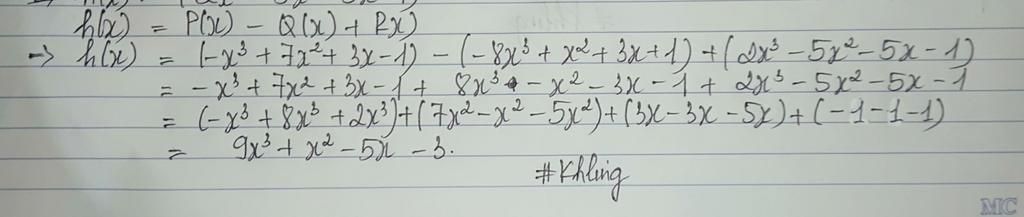 h(x) = P(x) - Q(x) + R(x)
→ h(x) = (-x³ + 7x² + 3x - 1) - (-8x³ + x² + 3x + 1) + (2x³ - 5x² - 5x - 1)
= -x³ + 7x² + 3x - 1 + 8x³ - x² - 3x - 1 + 2x³ - 5x² - 5x - 1
= (-x³ + 8x³ + 2x³) + (7x² - x² - 5x²) + (3x - 3x - 5x) + (-1 - 1 - 1)
= 9x³ + x² - 5x - 3.
#Khling
MC